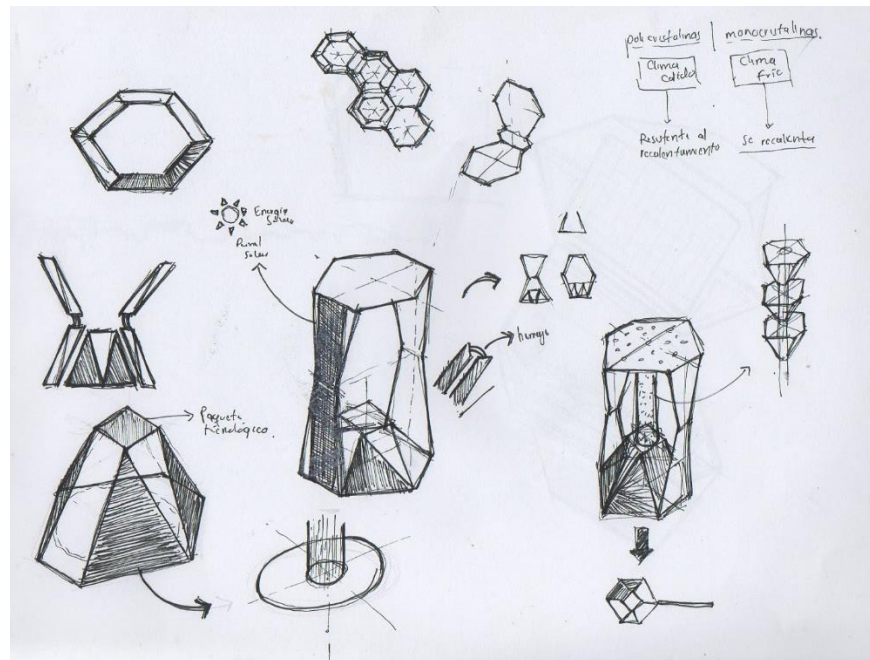 policristalinos | monocristalinos.
Clima
Calido
Clima
frio
Resistente al
recalentamiento
Se recalienta
Energia
Solar
Panel
Solar
Paquete
tecnológico.